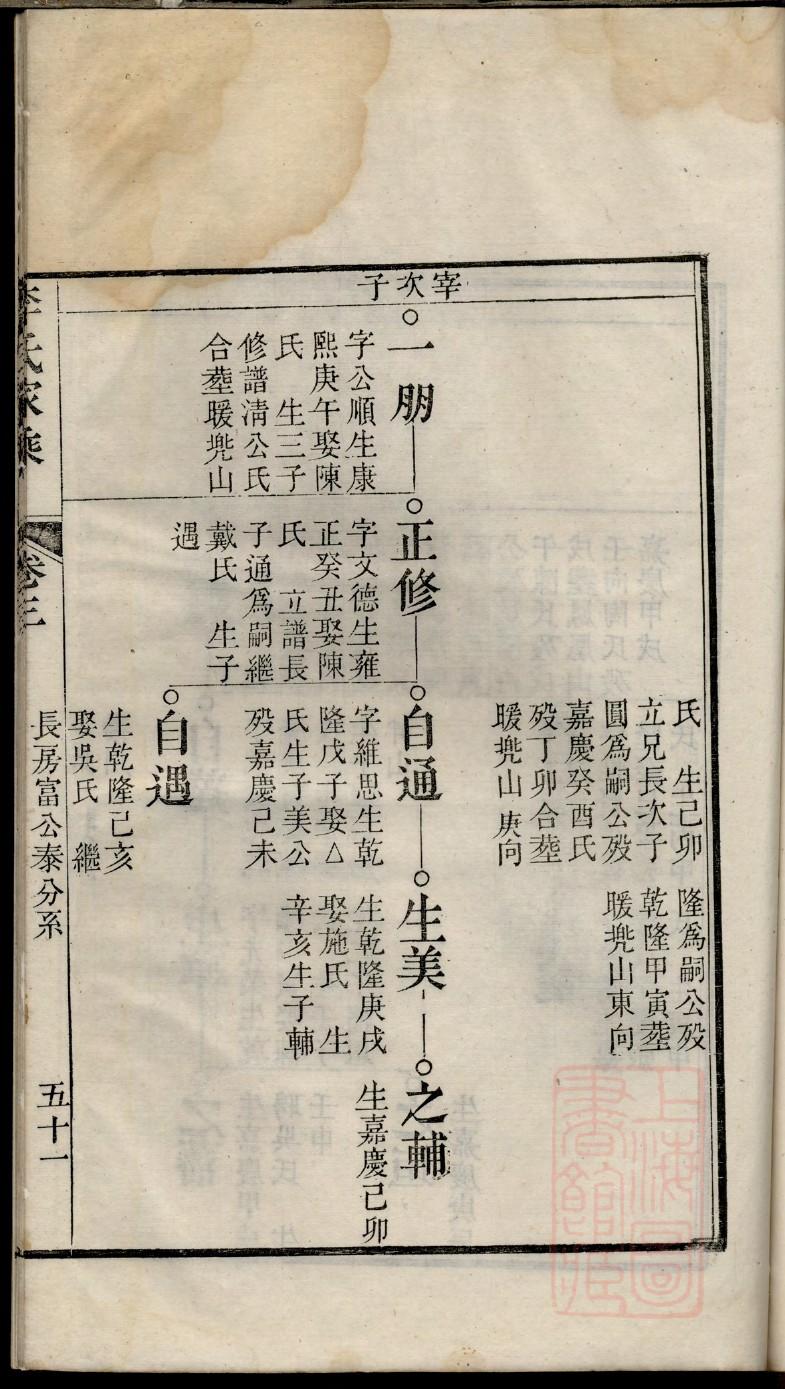 宰次子
氏　生己卯
立兄長次子
圓爲嗣公殁
嘉慶癸酉氏
殁丁卯合塟
暖㙈山庚向
隆爲嗣公殁
乾隆甲寅塟
暖㙈山東向
一朋
字公順生康
熙庚午娶陳
氏　生三子
修譜淸公氏
合塟暖㙈山
正修
字文德生雍
正癸丑娶陳
氏　立譜長
子通爲嗣繼
戴氏　生子
遇
自通
字維思生乾
隆戊子娶△
氏生子美公
殁嘉慶己未
生美
生乾隆庚戌
娶施氏　生
辛亥生子輔
之輔
生嘉慶己卯
自遇
生乾隆己亥
娶吳氏　繼
李氏家乘
卷三
長房富公泰分系
五十一
上海圖書館藏